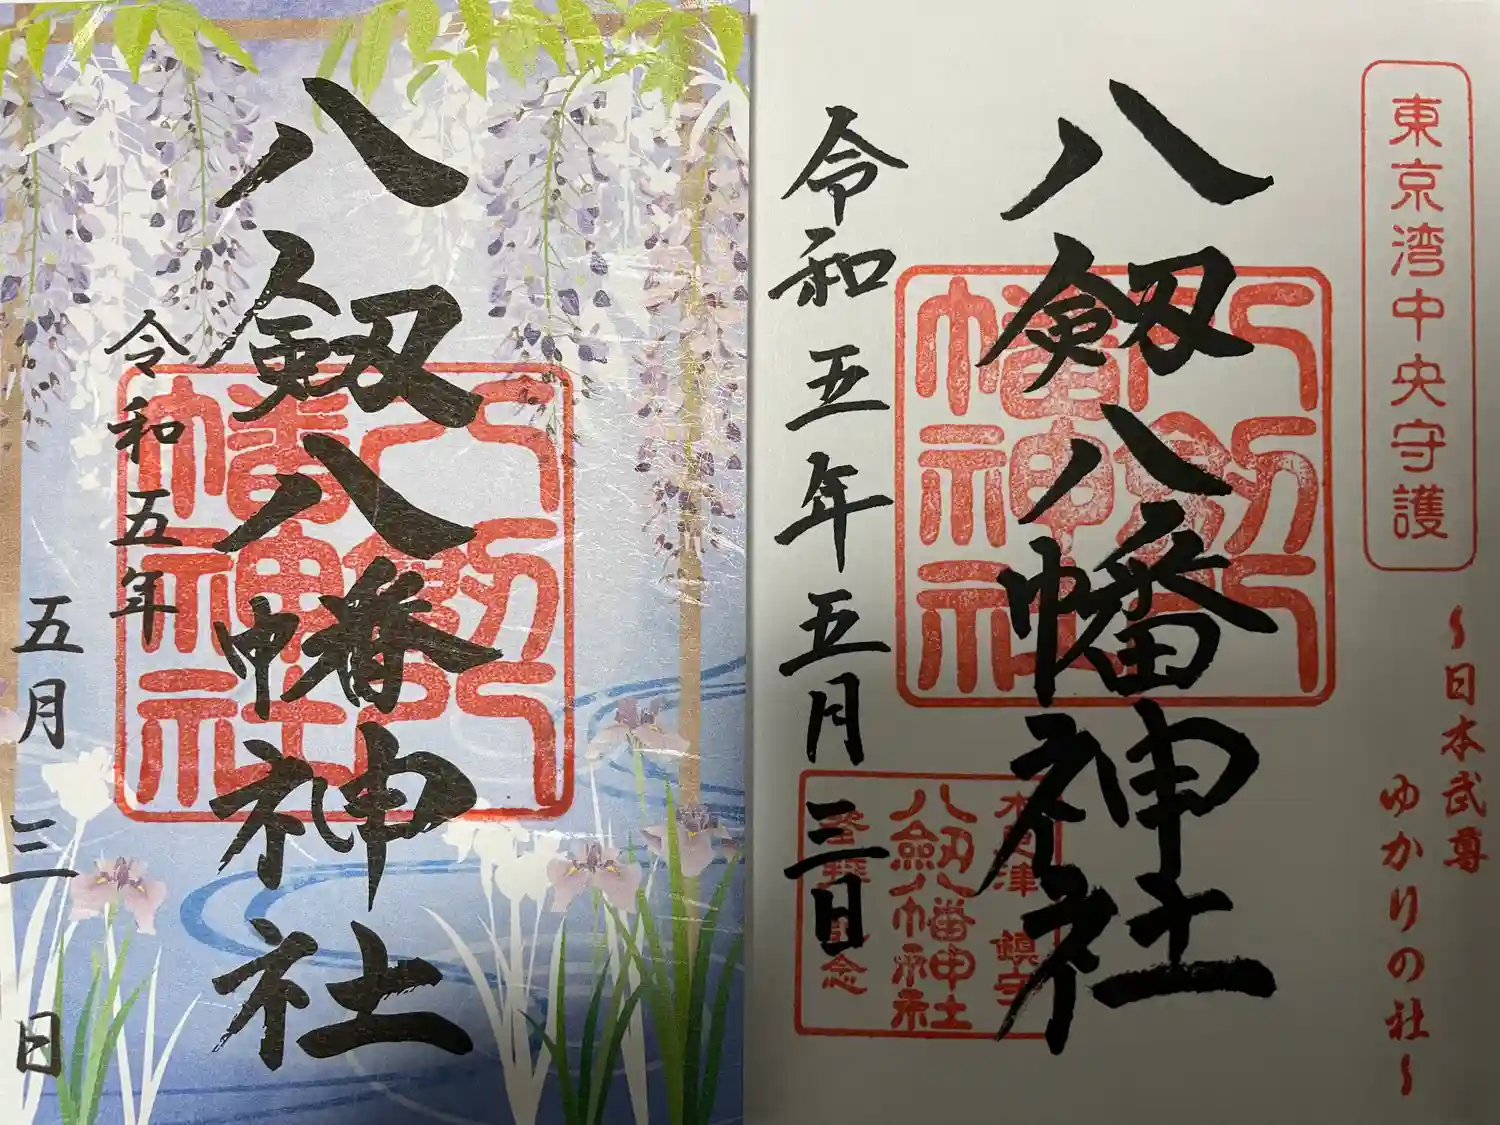 八剱八幡神社
令和五年
五月三日
八剱八幡神社
東京湾中央守護
～日本武尊
ゆかりの社～
八剱八幡神社
令和五年五月三日
八剱八幡神社
木更津 鎮守
八剱八幡神社
念